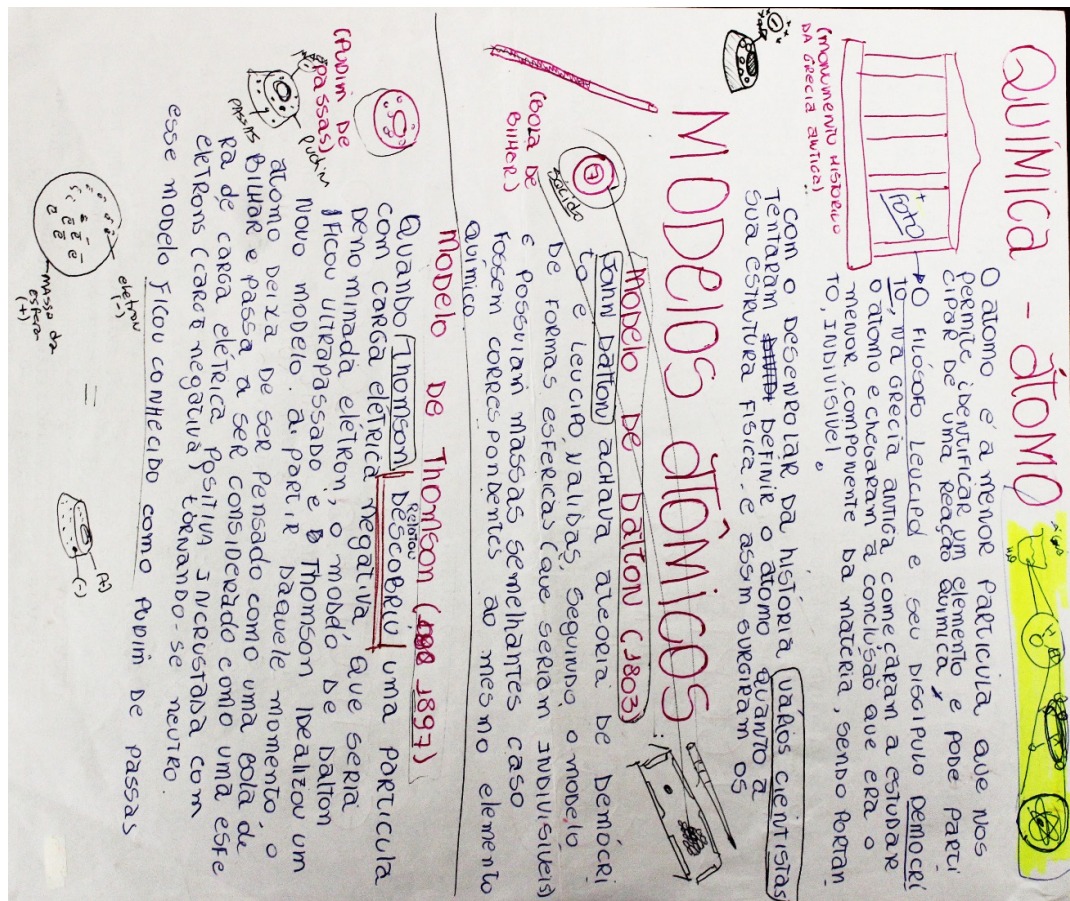 QUÍMICA - ÁTOMO
O átomo é a menor partícula que nos
permite identificar um elemento e pode parti
cipar de uma reação química
H2O
H
foto
(monumento histórico
da Grécia antiga)
O filósofo Leucipo e seu discípulo Demócri
to, na Grécia antiga começaram a estudar
o átomo e chegaram a conclusão que era o
menor componente da matéria, sendo portan
to, indivisível.
Com o desenrolar da história vários cientistas
tentaram definir o átomo quanto a
sua estrutura física e assim surgiram os
MODELOS ATÔMICOS
Modelo de Dalton (1803)
7
sólido
(Bola de
Bilher)
Jonh Dalton achava a teoria de Demócri
to e Leucipo validas, segundo o modelo
de formas esféricas (que seriam indivisíveis)
e possuiam massas semelhantes caso
fossem correspondentes ao mesmo elemento
químico
Modelo de Thomson (1897)
(Pudim de
passas)
passas
pudim
Quando Thomson descobriu uma partícula
Relatou
com carga elétrica negativa que seria
denominada elétron, o modelo de Dalton
ficou ultrapassado e Thomson idealizou um
novo modelo. a partir daquele momento o
átomo deixa de ser pensado como uma bola de
Bilhar e passa a ser considerado como uma esfe
ra de carga elétrica positiva incrustada com
elétrons (carga negativa) tornando-se neutro
esse modelo ficou conhecido como Pudim de passas
eletron
(-)
massa da
esfera
(+)
=
(+)
(-)